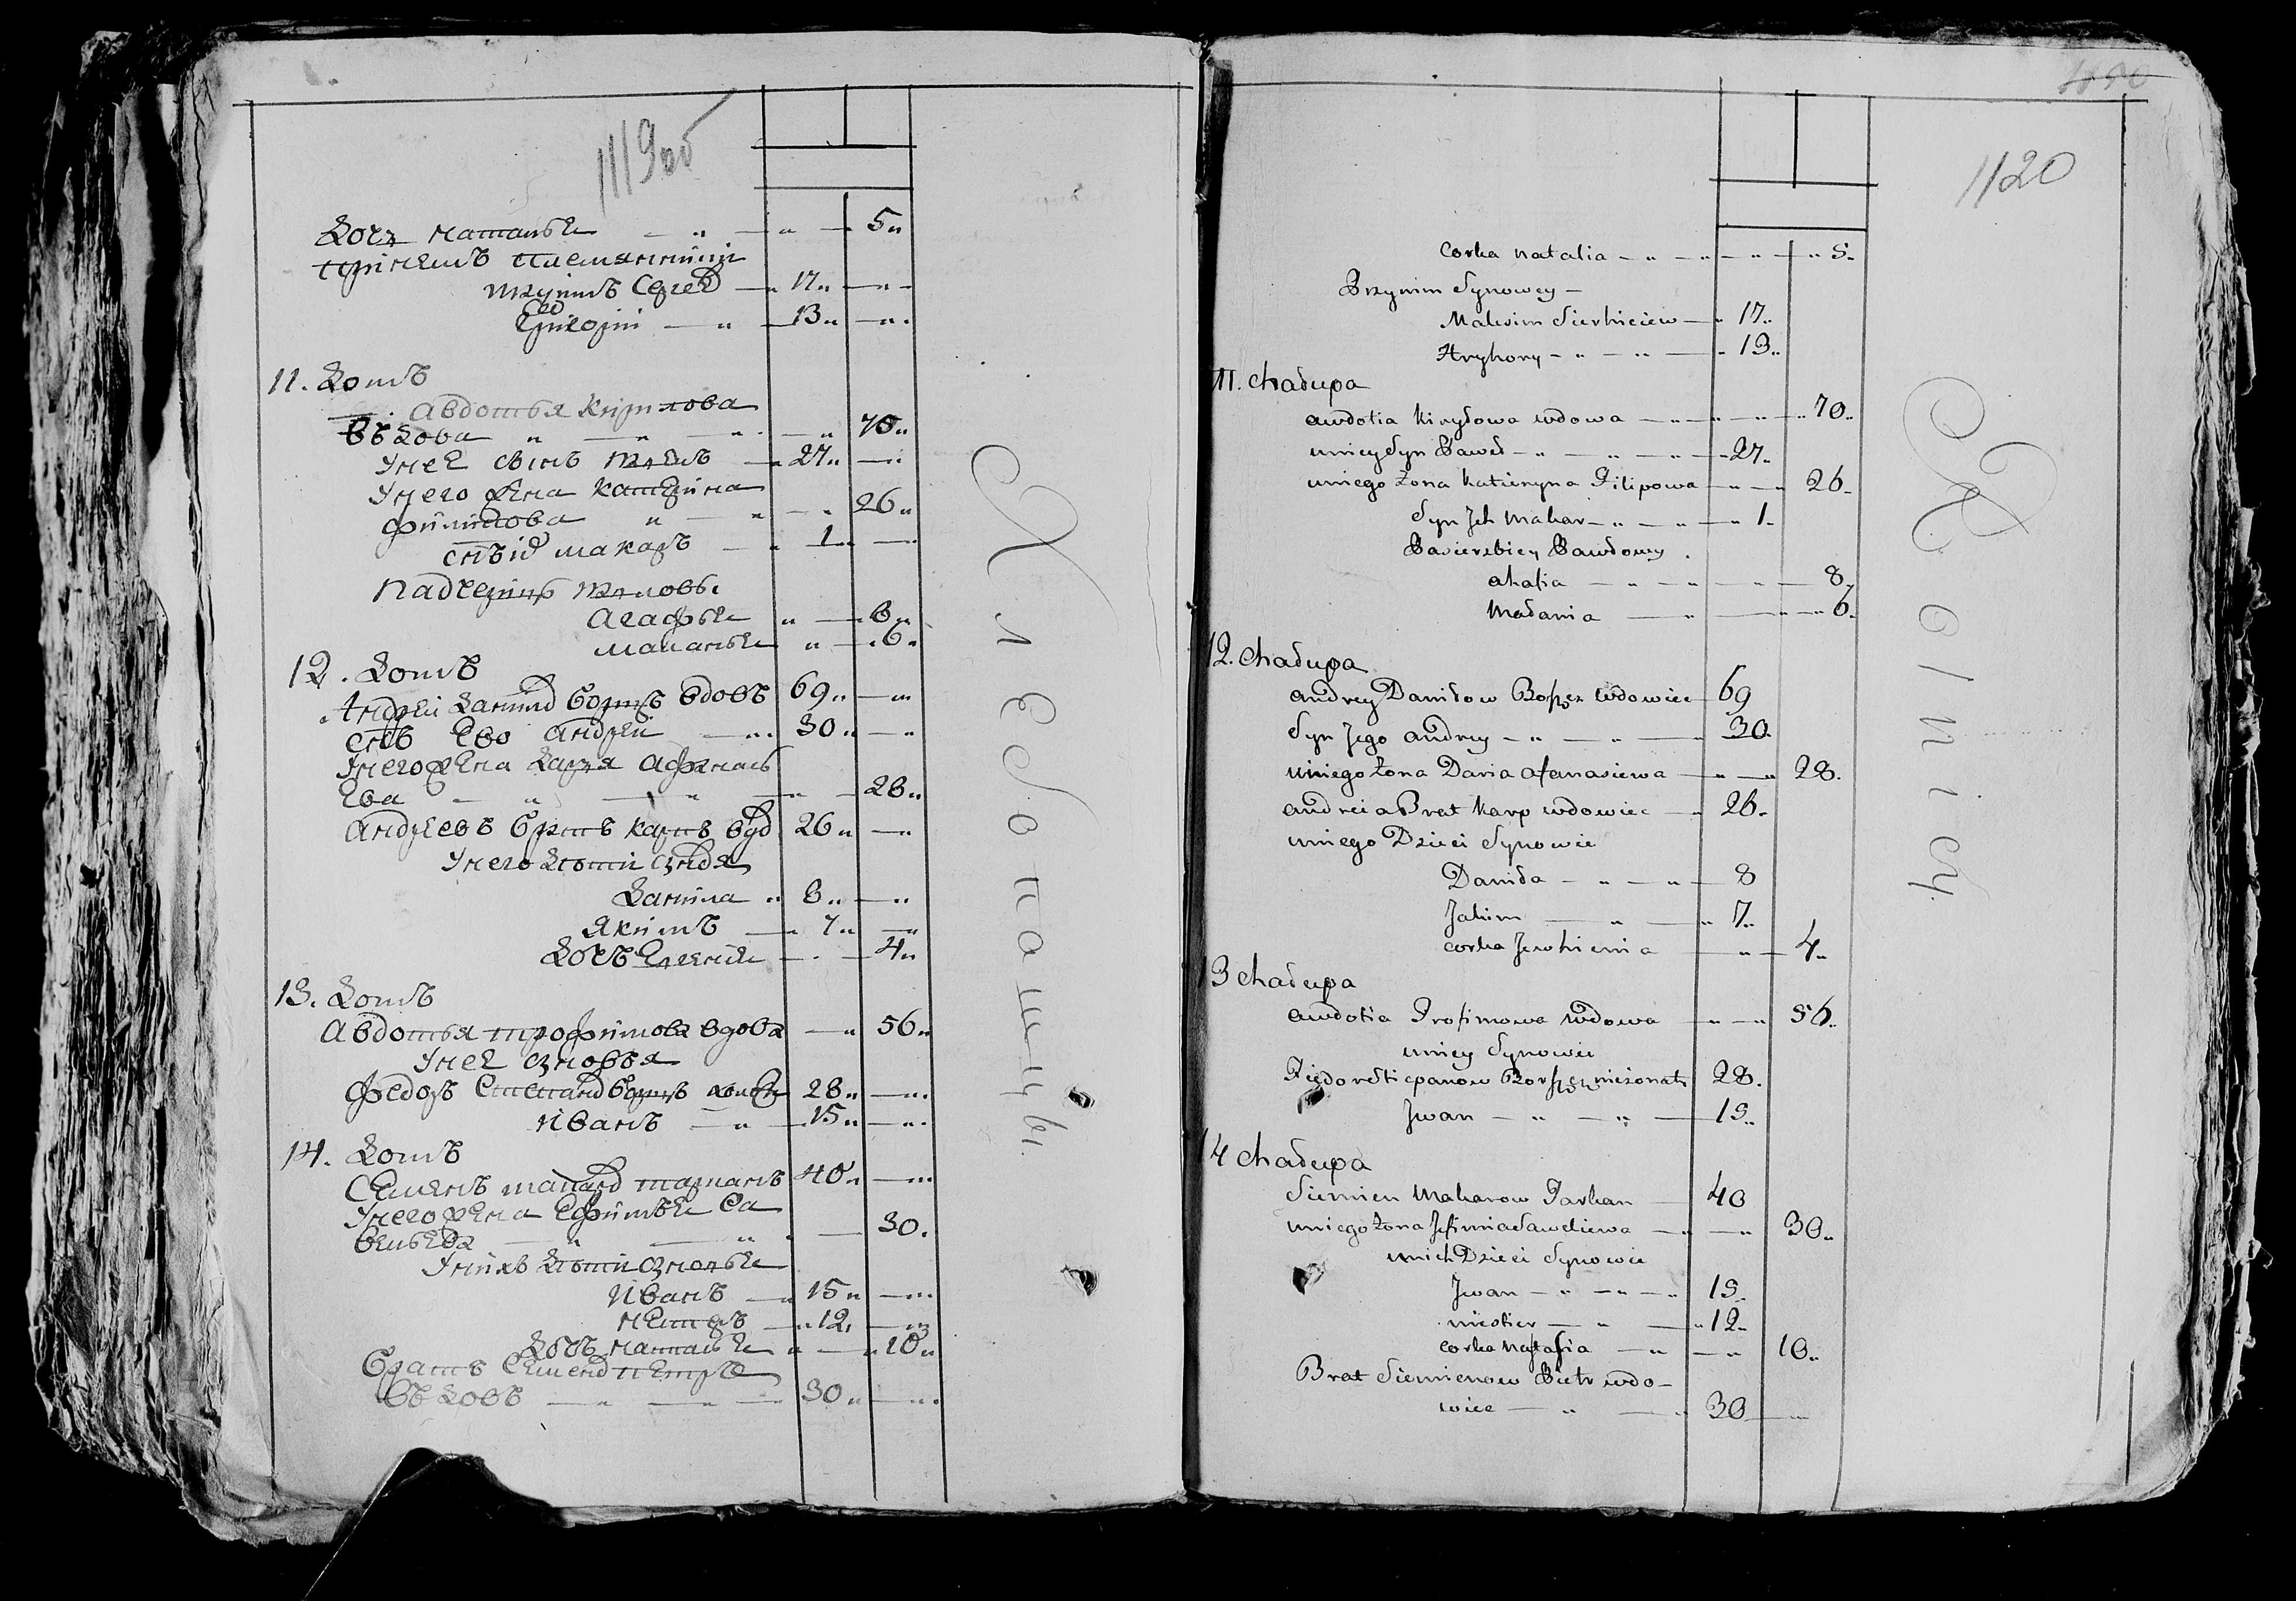 1119 об
Дочь наталья — " — " — 5 "
принемъ племянники
максимъ Сергеев — 17 " — "
Григори — " — 13 " — "
11. Домъ
Авдотья кирилова
вдова " — " — " — " 70 "
Унее сынъ павелъ — 27 " — "
Унего жена катерина
филипова " — " — " 26 "
сынъ их макаръ — " 1 " —
падчерицы павловы
агафья " — 8 "
маланья " — 6 "
12. Домъ
Андреи Данилов борщъ вдовъ 69 " — "
сынъ Ево андреи — " 30 " — "
Унего жена дарья афонась
Ева — " — " — " — 28 "
андреевъ братъ карпъ вдо 26 " — "
Унего дети сыновья
Данила " 8 " — "
якимъ — 7 " — "
Дочь Евгения — " — 4 "
13. Домъ
Авдотья трофимова вдова — " 56 "
Унее сыновья
федоръ степанов борщъ холост 28 " — "
Иванъ — " — 15 " — "
14. Домъ
Семенъ макаров тарканъ 40 " — "
Унего жена Ефимья Са
вельева — " — " — 30 "
Унихъ дети сыновья
Иванъ — " 15 " — "
нестеръ — " 12 " — "
Дочь наталья " — " 10 "
братъ Семенов петръ
вдовъ — " — " — 30 " — "
Хлебопашцы.
1120
Corka Natalia — " — " — " — " 5 "
Przynim Synowcy —
Maksim Sierhiejew — " 17 "
Hryhory — " — " — " 13 "
11. Chałupa
awdotia Kiryłowa wdowa — " — " — " 70 "
uniey Syn Paweł — " — " — " 27 "
uniego Zona Katieryna Filipowa — " — " 26 "
Syn Jch Makar — " — " — " 1 "
Pasierzbicy Pawłowy
ahafia — " — " — " — 8 "
Małania — " — " — " 6 "
12. Chałupa
andrey Daniłow Borszcz wdowiec — 69
Syn Jego andrey — " — " — 30 "
uniego Zona Daria afanasiewa — " — " 28 "
andreia Brat Karp wdowiec — " 26 "
uniego Dzieci Synowie
Daniła — " — " — 8
Jakim — " — " 7 "
corka Jewhienia — " — 4 "
13 Chałupa
awdotia Trofimowa wdowa — " — " 56 "
uniey Synowie
Fiedor Stiepanow Borszcz nieżonaty 28 "
Jwan — " — " — 15 "
14 Chałupa
Siemien Makarow Tarkan — 40
uniego Zona Jefimia Saweliewa — " — " 30 "
unich Dzieci Synowie
Jwan — " — " — " 15 "
niestier — " — " 12 "
corka Natalia — " — " 10 "
Brat Siemienow Pietr wdo-
wiec — " — " 30 — "
Rolnicy.